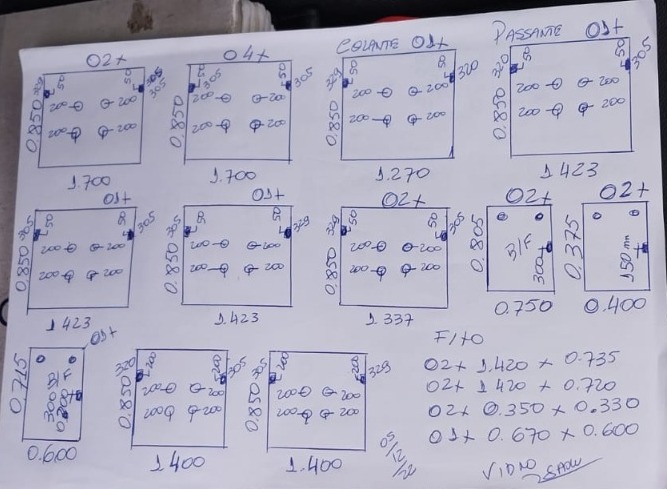 02+
50 50 305
200 200
200 200
0.850
1.700
04+
50 305 50 305
200 200
200 200
0.850
1.700
COLANTE 01+
329 50 50 320
200 200
200 200
0.850
1.270
PASSANTE 01+
320 50 50 305
200 200
200 200
0.850
1423
01+
305 50 50 305
200 200
200 200
0.850
1423
01+
305 50 50 329
200 200
200 200
0.850
1.423
02+
329 50 50 305
200 200
200 200
0.850
1337
02+
0.805
300
0.750
02+
0.375
150 mm
0.400
01+
0.715
0.600
320 200 200 305
200 200
200 200
0.850
1400
305 200 200 329
200 200
200 200
0.850
1.400
FIXO
02+ 1.420 x 0.735
02+ 1420 x 0.720
02+ 0.350 x 0.330
01+ 0.670 x 0.600
05/12/22
VIDRO